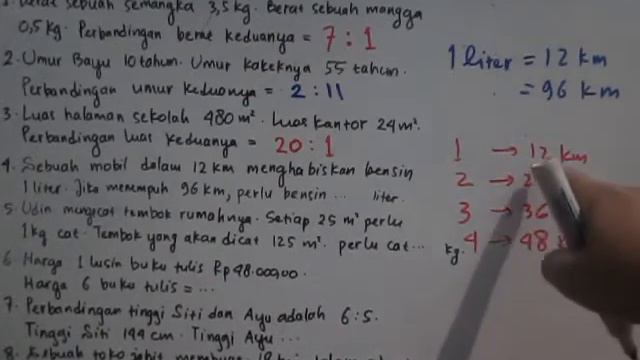 1. Berat sebuah semangka 3,5 kg. Berat sebuah mangga
0,5 kg. Perbandingan berat keduanya = 7 : 1
2. Umur Bayu 10 tahun. Umur kakeknya 55 tahun.
Perbandingan umur keduanya = 2 : 11
3. Luas halaman sekolah 480 m². Luas kantor 24 m².
Perbandingan luas keduanya = 20 : 1
4. Sebuah mobil dalam 12 km menghabiskan bensin
1 liter. Jika menempuh 96 km, perlu bensin ... liter.
5. Udin mengecat tembok rumahnya. Setiap 25 m² perlu
1 kg cat. Tembok yang akan dicat 125 m². perlu cat ... kg.
6. Harga 1 lusin buku tulis Rp 48.000,00.
Harga 6 buku tulis = ...
7. Perbandingan tinggi Siti dan Ayu adalah 6 : 5.
Tinggi Siti 144 cm. Tinggi Ayu ...
8. Sebuah toko
1 liter = 12 km
= 96 km
1 → 12 km
2 → 2
3 → 36
4 → 48